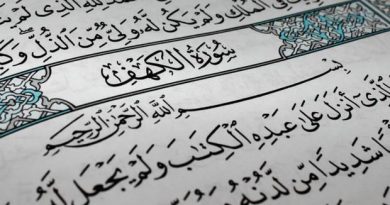 لِلَّهِ ٱلَّذِى لَمْ
ٱلْمُلْكِ وَلَمْ يَكُن لَّهُۥ وَلِىٌّ مِّنَ ٱلذُّلِّ
سُورَةُ الْكَهْفِ
بِسْمِ ٱللَّهِ ٱلرَّحْمَٰنِ ٱلرَّحِيمِ
ٱلَّذِىٓ أَنزَلَ عَلَىٰ عَبْدِهِ ٱلْكِتَٰبَ وَلَمْ يَجْعَل لَّهُۥ
شَدِيدًا مِّن لَّدُنْهُ